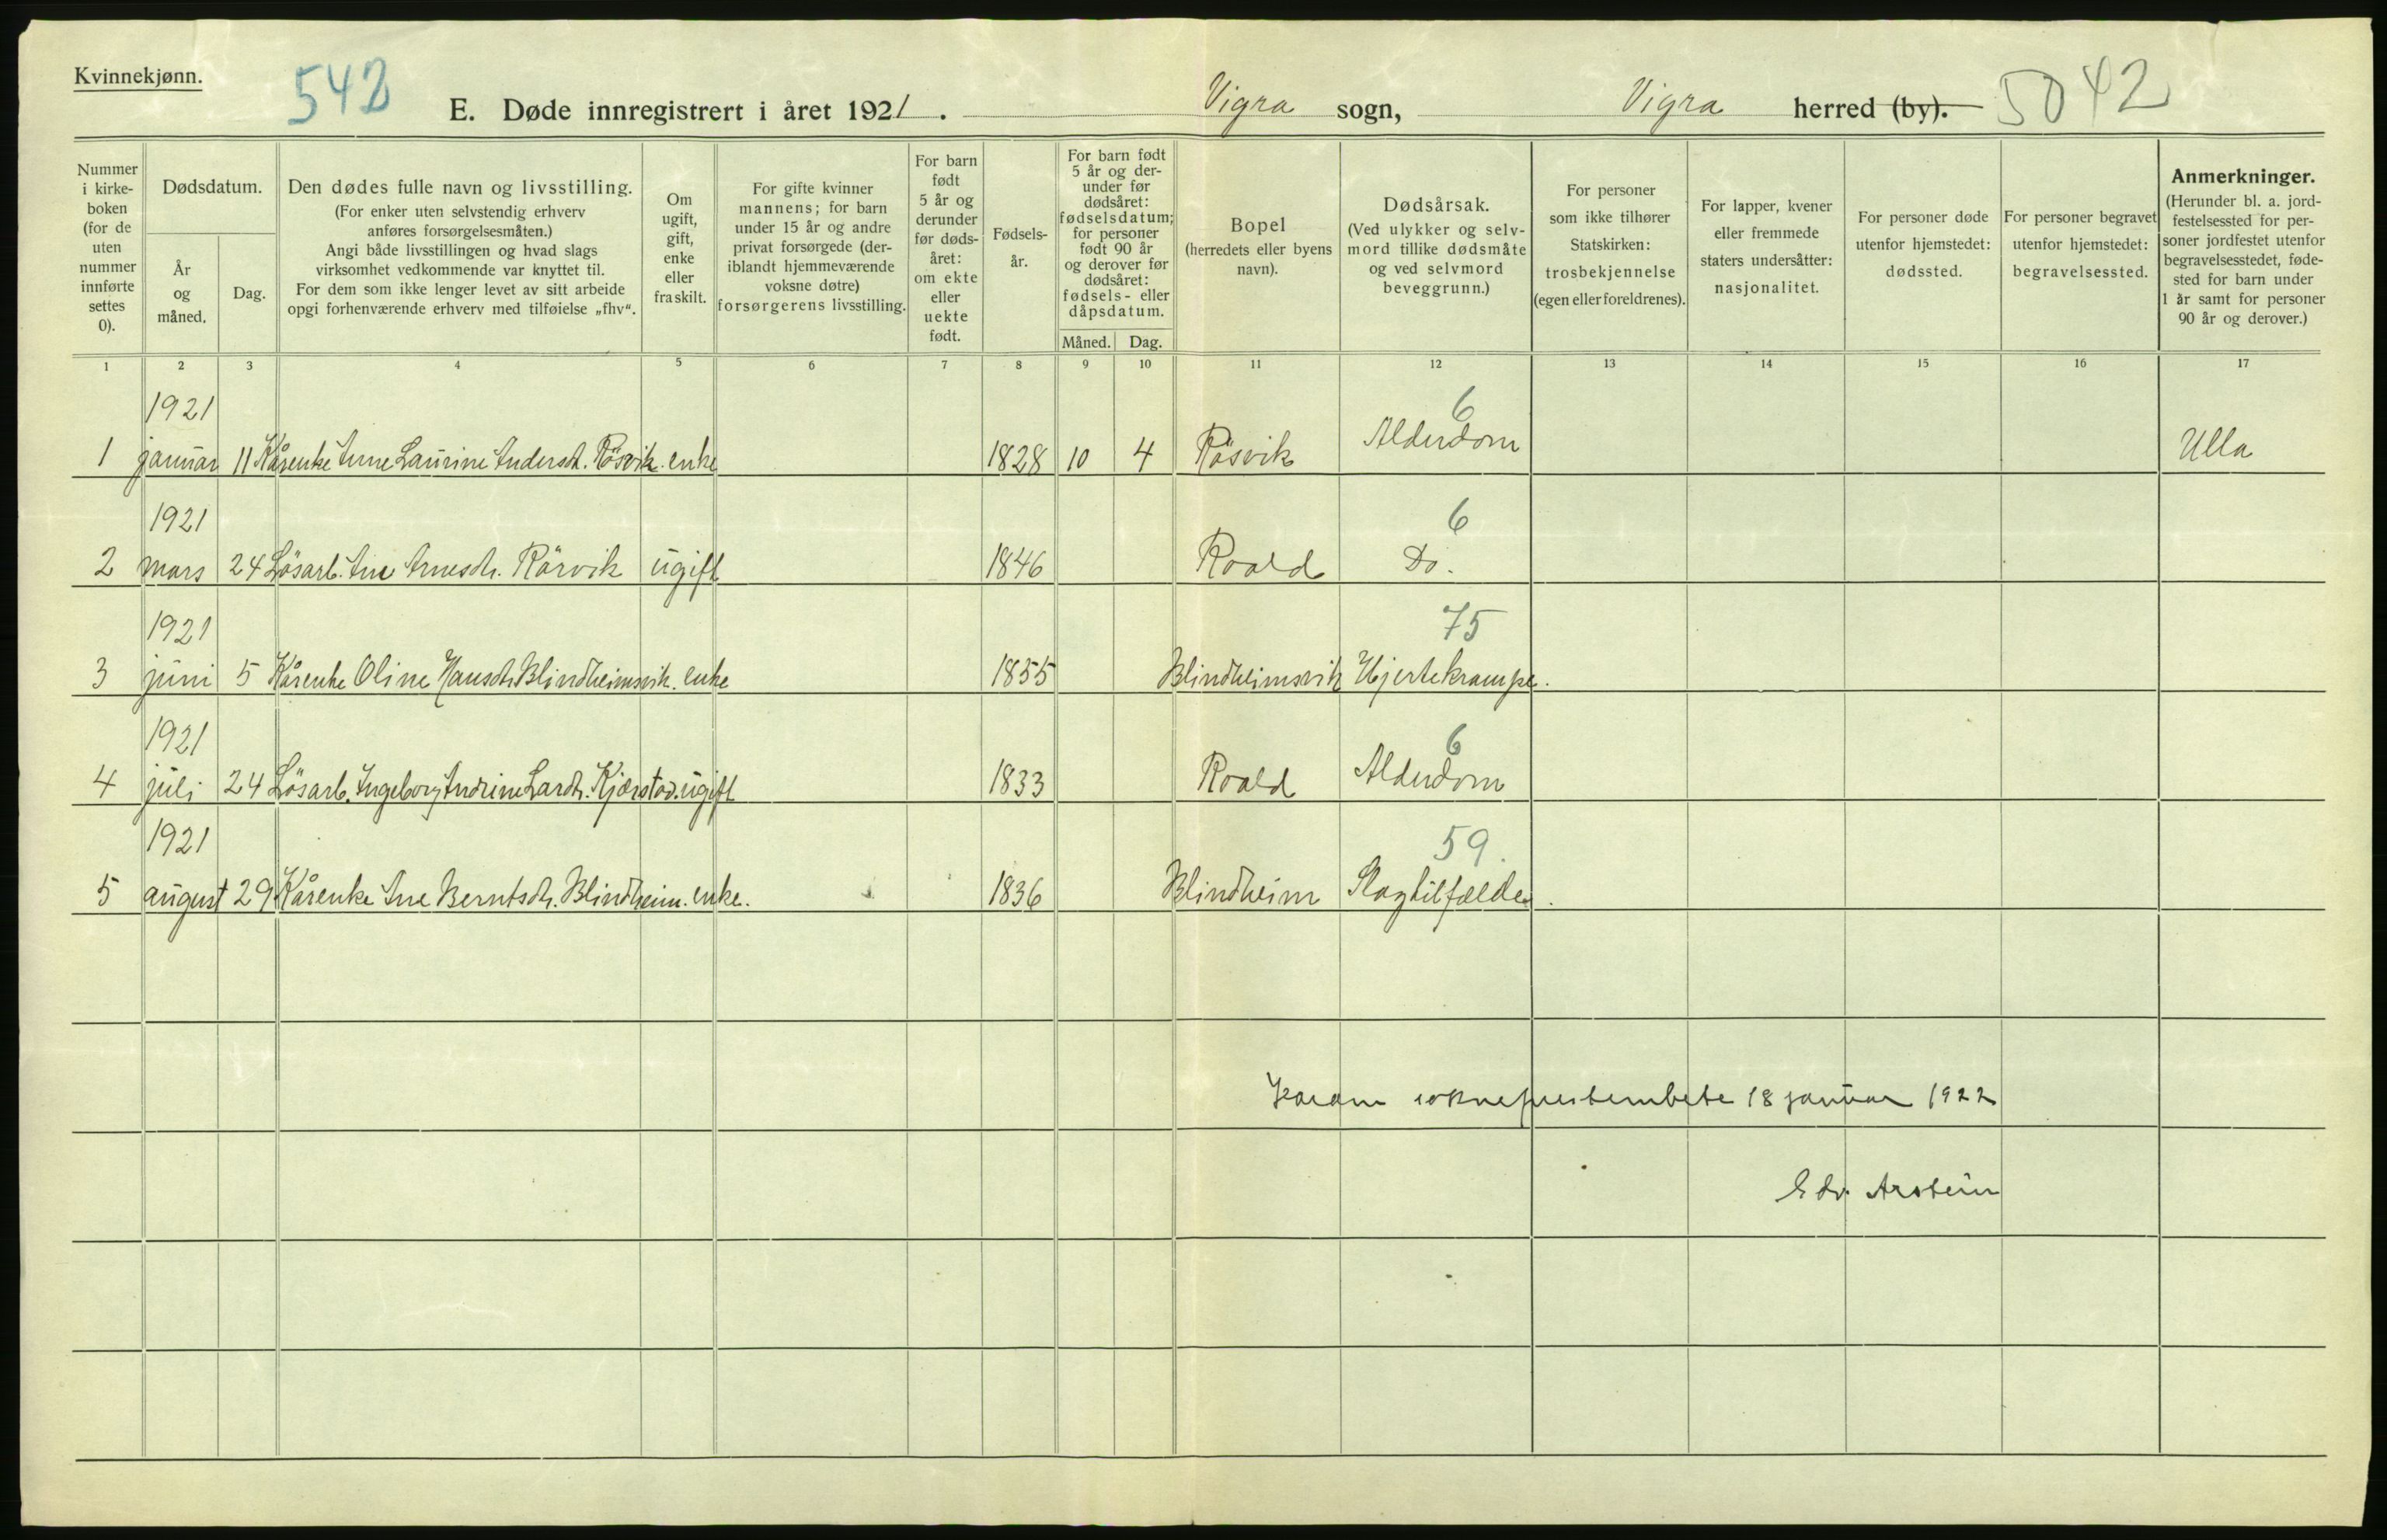 Kvinnekjønn.
542
E. Døde innregistrert i året 1921. Vigra sogn, Vigra herred (by). 5042
Nummer i kirke-boken (for de uten nummer innførte settes 0).
Dødsdatum.
År og måned.
Dag.
Den dødes fulle navn og livsstilling.
(For enker uten selvstendig erhverv
anføres forsørgelsesmåten.)
Angi både livsstillingen og hvad slags
virksomhet vedkommende var knyttet til.
For dem som ikke lenger levet av sitt arbeide
opgi forhenværende erhverv med tilføielse „fhv“.
Om ugift, gift, enke eller fraskilt.
For gifte kvinner
mannens; for barn
under 15 år og andre
privat forsørgede (der-
iblandt hjemmeværende
voksne døtre)
forsørgerens livsstilling.
For barn født 5 år og derunder før døds-året: om ekte eller uekte født.
Fødsels-år.
For barn født
5 år og der-
under før
dødsåret:
fødselsdatum;
for personer
født 90 år
og derover før
dødsåret:
fødsels- eller
dåpsdatum.
Måned. Dag.
Bopel
(herredets eller byens
navn).
Dødsårsak.
(Ved ulykker og selv-
mord tillike dødsmåte
og ved selvmord
beveggrunn.)
For personer
som ikke tilhører
Statskirken:
trosbekjennelse
(egen eller foreldrenes).
For lapper, kvener
eller fremmede
staters undersåtter:
nasjonalitet.
For personer døde
utenfor hjemstedet:
dødssted.
For personer begravet
utenfor hjemstedet:
begravelsessted.
Anmerkninger.
(Herunder bl. a. jord-
festelsessted for per-
soner jordfestet utenfor
begravelsesstedet, føde-
sted for barn under
1 år samt for personer
90 år og derover.)
1 2 3 4 5 6 7 8 9 10 11 12 13 14 15 16 17
1921 6
1 januar 11 Kårenke Anne Laurine Andersd. Rösvik. enke 1828 10 4 Rösvik Alderdom Ulla
1921 6
2 mars 24 Lösarb. Ane Arnesdr. Rörvik ugift 1846 Roald Do.
1921 75
3 juni 5 Kårenke Oline Hansdr. Blindheimsvik. enke 1855 Blindheimsvik Hjertekrampe.
1921 6
4 juli 24 Lösarb. Ingeborg Andrine Lardr. Kjærstad. ugift 1833 Roald Alderdom
1921 59.
5 august 29 Kårenke Ane Berntsdr. Blindheim. enke. 1836 Blindheim Slagtilfælde.
sokneprestembete 18 januar 1922
Edv. Arstein